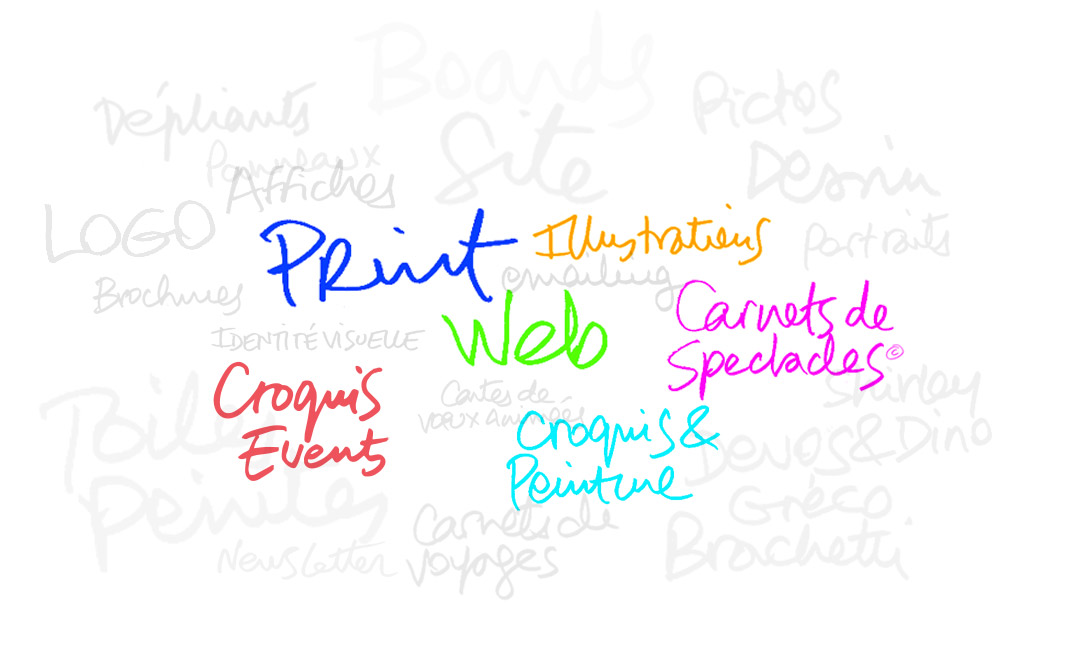 Boards
Pictos
Dépliants
Site
Panneaux
Dessin
Affiches
LOGO
Print
Illustrations
Portraits
emailing
Brochures
Carnets de
Spectacles©
Web
IDENTITÉ VISUELLE
Croquis
Events
Cartes de
voeux animées
Shirley
Croquis &
Peinture
Devos & Dino
Toiles
Peintes
Gréco
Carnets de
voyages
Brachetti
Newsletter